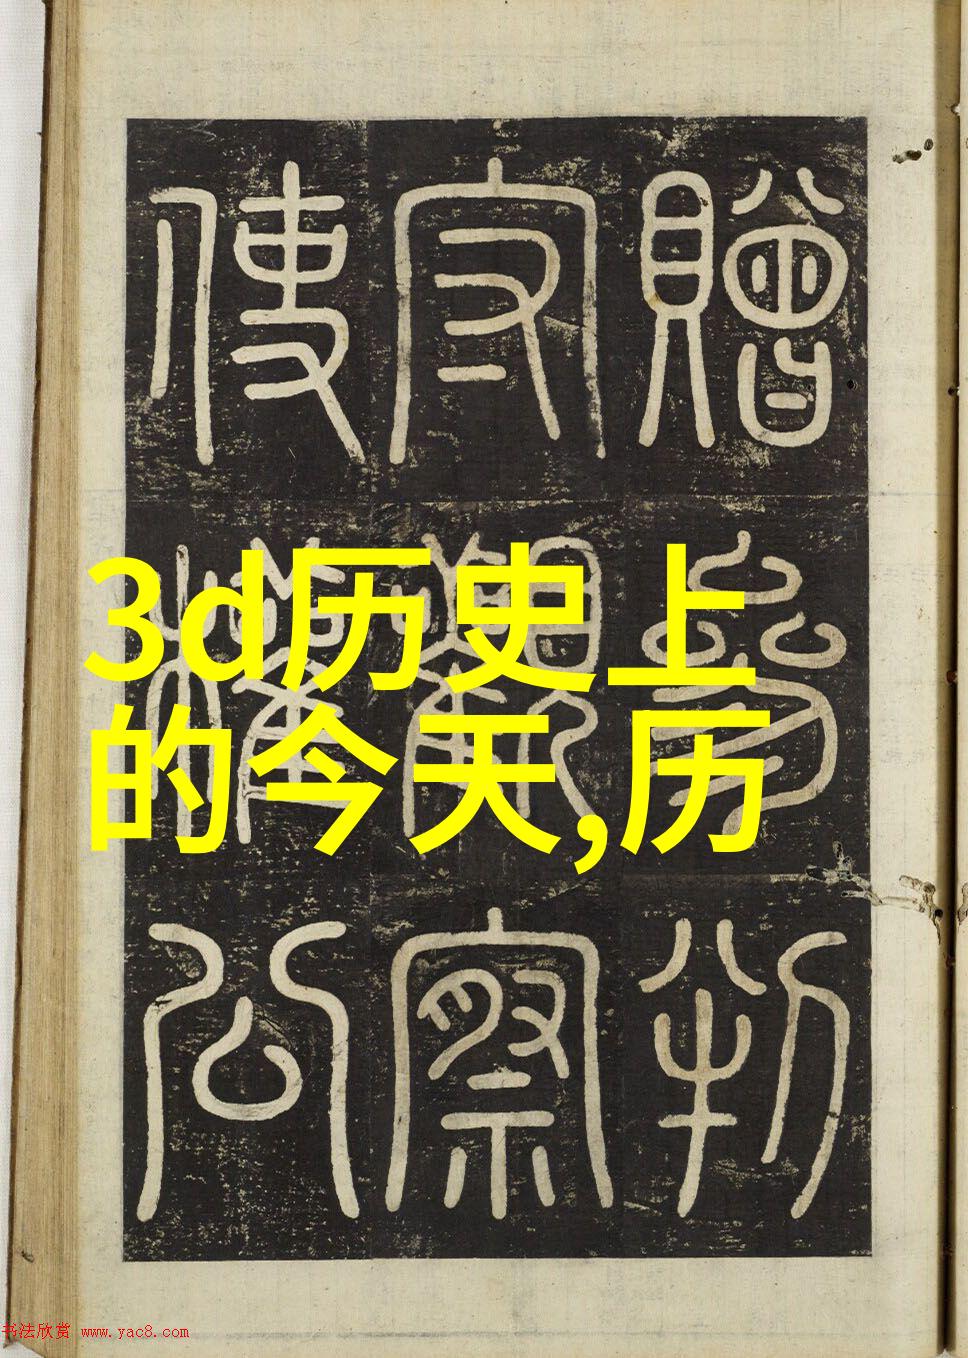 3d历史上
的今天,历
贈 判
觀察
使權公
书法欣赏 www.yac8.com